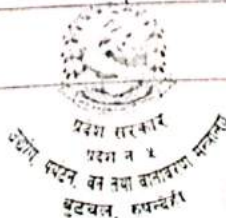 प्रदेश सरकार
प्रदेश नं ५
उद्योग, पर्यटन, वन तथा वातावरण मन्त्रालय
बुटवल, रुपन्देही